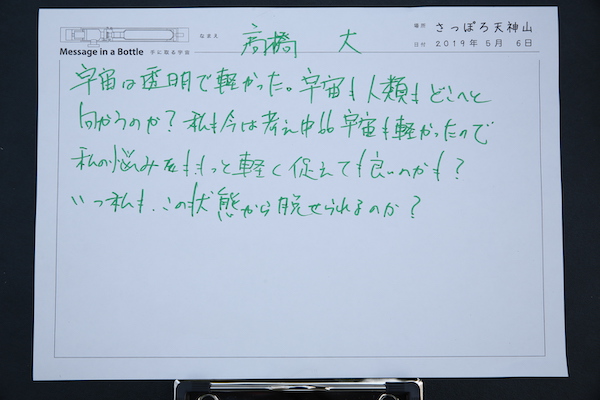 なまえ 高橋 大
場所 さっぽろ天神山
Message in a Bottle 手に取る宇宙
日付 2019年5月 6日
宇宙は透明で軽かった。宇宙も人類もどこへと
向かうのか？私も今は考え中 宇宙も軽かったので
私の悩みをももっと軽く捉えても良いのかも？
いつ私も、この状態から脱せられるのか？